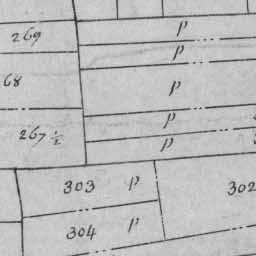 269 P
P
68 P
P
267 ½ P
303 P 302
304 P